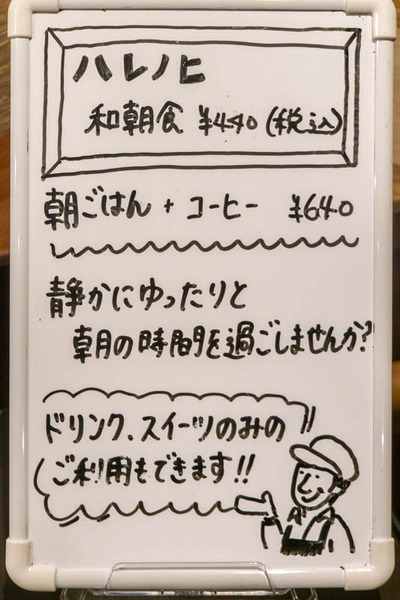 ハレノヒ
和朝食 ¥440(税込)
朝ごはん + コーヒー ¥640
静かにゆったりと
朝の時間を過ごしませんか?
ドリンク、スイーツのみの
ご利用もできます!!